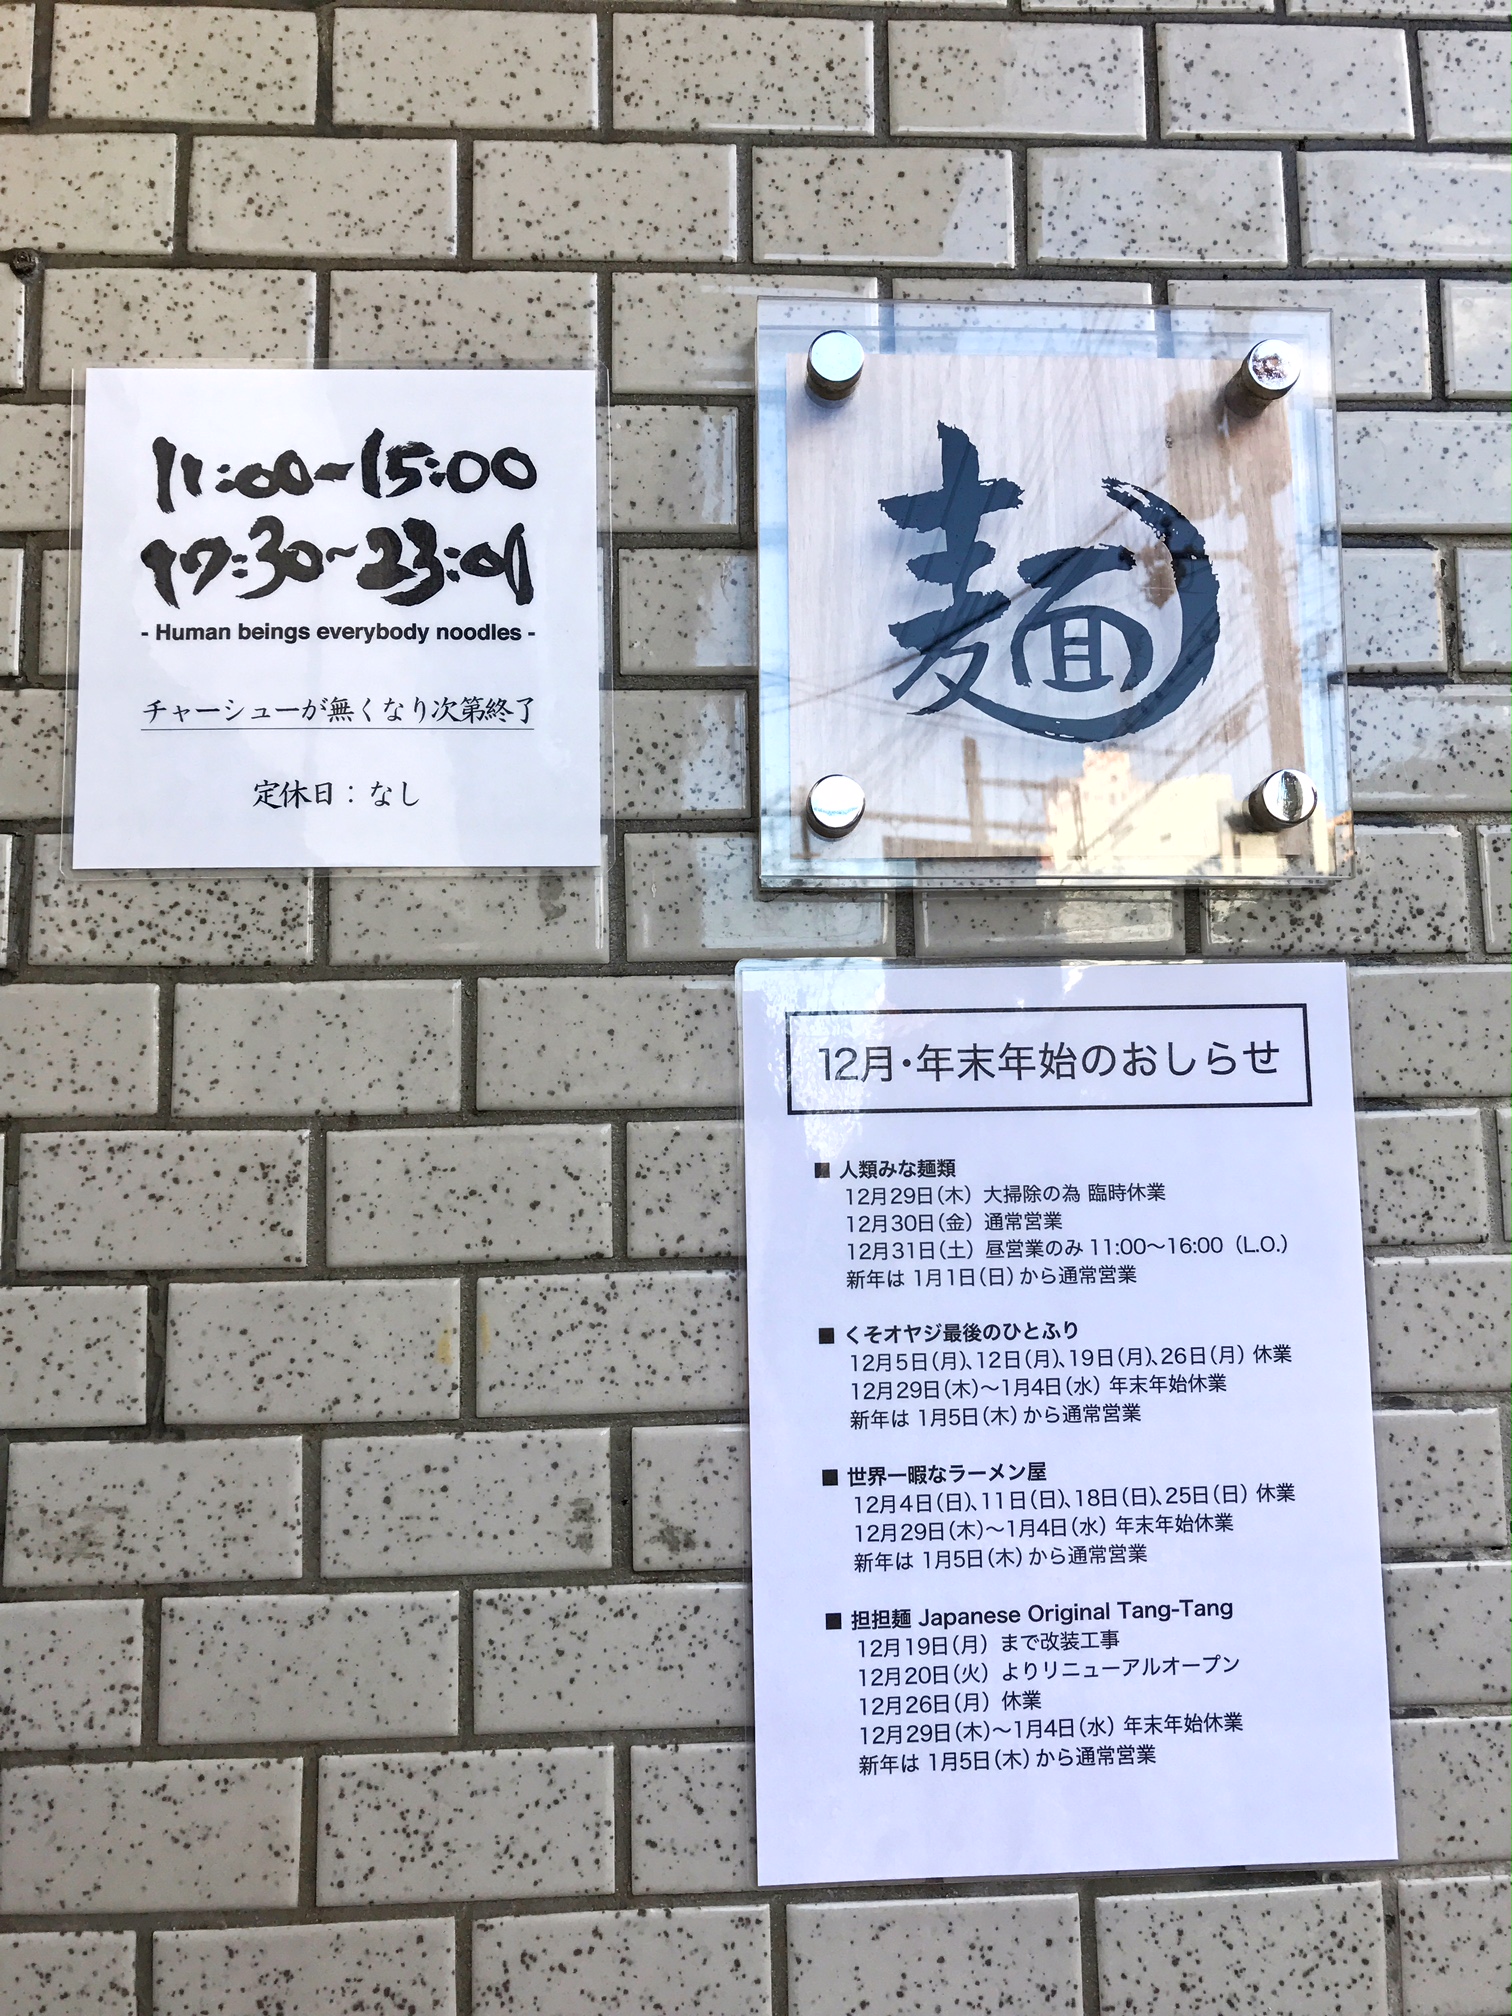 11:00-15:00
17:30~23:01
- Human beings everybody noodles -
チャーシューが無くなり次第終了
定休日：なし
麺
12月・年末年始のおしらせ
■ 人類みな麺類
12月29日（木） 大掃除の為 臨時休業
12月30日（金） 通常営業
12月31日（土） 昼営業のみ 11:00〜16:00（L.O.）
新年は 1月1日（日）から通常営業
■ くそオヤジ最後のひとふり
12月5日（月）、12日（月）、19日（月）、26日（月） 休業
12月29日（木）〜1月4日（水） 年末年始休業
新年は 1月5日（木）から通常営業
■ 世界一暇なラーメン屋
12月4日（日）、11日（日）、18日（日）、25日（日） 休業
12月29日（木）〜1月4日（水） 年末年始休業
新年は 1月5日（木）から通常営業
■ 担担麺 Japanese Original Tang-Tang
12月19日（月） まで改装工事
12月20日（火） よりリニューアルオープン
12月26日（月） 休業
12月29日（木）〜1月4日（水） 年末年始休業
新年は 1月5日（木）から通常営業